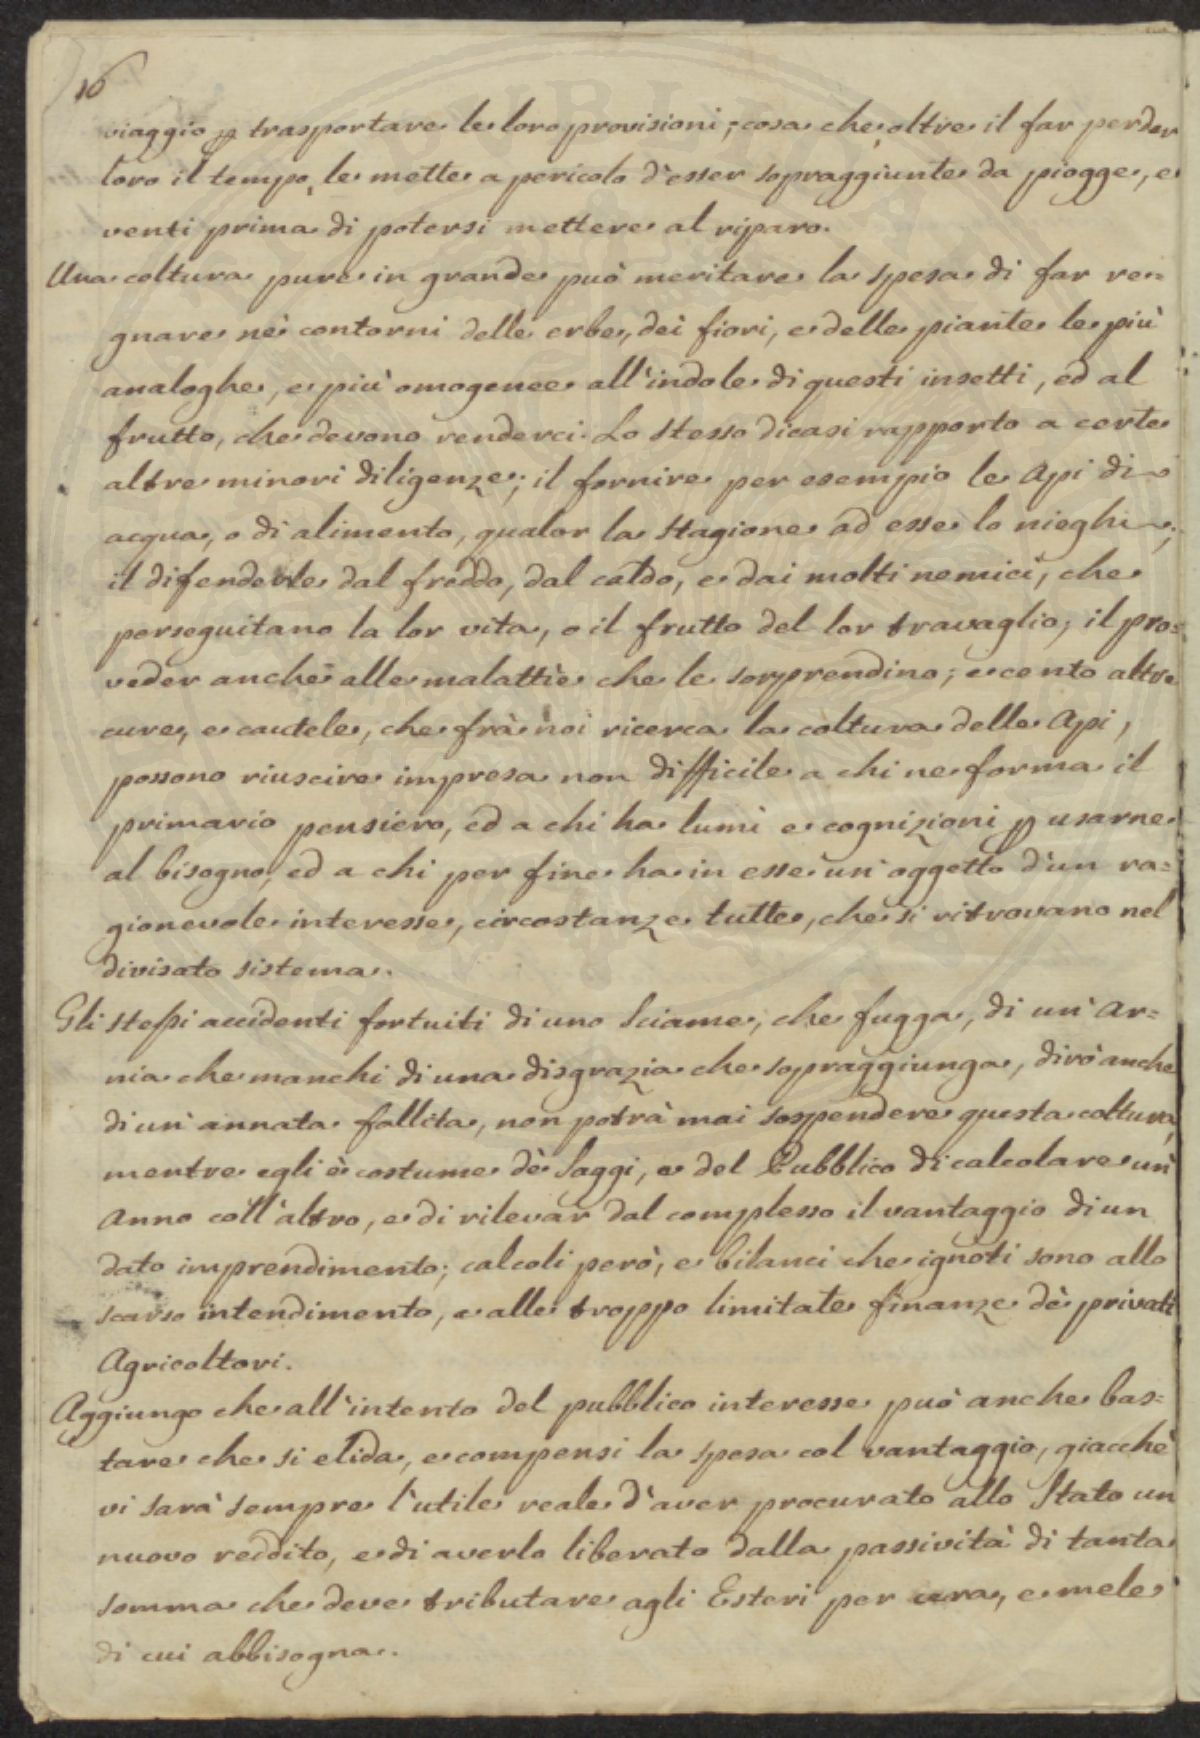 16
viaggio p trasportare le loro provisioni; cosa che oltre il far perder
loro il tempo, le mette a pericolo d'esser sopraggiunte da piogge, e
venti prima di potersi mettere al riparo.
Una coltura pure in grande può meritare la spesa di far re=
gnare nè contorni delle erbe, dei fiori, e delle piante le più
analoghe, e più omogenee all'indole di questi insetti, ed al
frutto, che devono renderci. Lo stesso dicasi rapporto a certe
altre minori diligenze; il fornire per esempio le Api di
acqua, o di alimento, qualor la Stagione ad esse lo nieghi;
il difenderle dal freddo, dal caldo, e dai molti nemici, che
perseguitano la lor vita, o il frutto del lor travaglio; il pro=
veder anche alle malattie che le sorprendino; e cento altre
cure, e cautele, che frà noi ricerca la coltura delle Api,
possono riuscire impresa non difficile a chi ne forma il
primario pensiero, ed a chi ha lumi e cognizioni p usarne
al bisogno, ed a chi per fine ha in esse un'oggetto d'un ra=
gionevole interesse, circostanze tutte, che si ritrovano nel
divisato sistema.
Gli stessi accidenti fortuiti di uno Sciame, che fugga, di un'Ar=
nia che manchi di una disgrazia che sopraggiunga, dirò anche
di un'annata fallita, non potrà mai sospendere questa coltura,
mentre egli è costume dè Saggi, e del Pubblico di calcolare un'
Anno coll'altro, e di rilevar dal complesso il vantaggio di un
dato imprendimento; calcoli però, e bilanci che ignoti sono allo
scarso intendimento, e alle troppo limitate finanze dè privati
Agricoltori.
Aggiungo che all'intento del pubblico interesse può anche bas=
tare che si elida, e compensi la spesa col vantaggio, giacchè
vi sarà sempre l'utile reale d'aver procurato allo Stato un
nuovo reddito, e di averlo liberato dalla passività di tanta
somma che deve tributare agli Esteri per cera, e mele
di cui abbisogna.